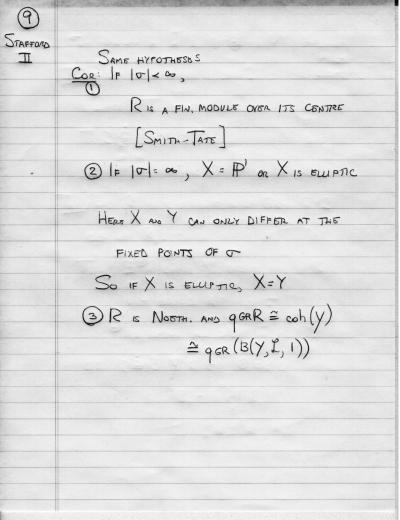 9
STAFFORD
II
SAME HYPOTHESIS
COR: IF |σ| < ∞,
①
R IS A FIN. MODULE OVER ITS CENTRE
[SMITH-TATE]
② IF |σ| = ∞, X = ℙ¹ OR X IS ELLIPTIC
HERE X AND Y CAN ONLY DIFFER AT THE
FIXED POINTS OF σ
SO IF X IS ELLIPTIC, X=Y
③ R IS NOETH. AND qGR R ≅ coh(Y)
≅ qGR(B(Y, ℒ, 1))